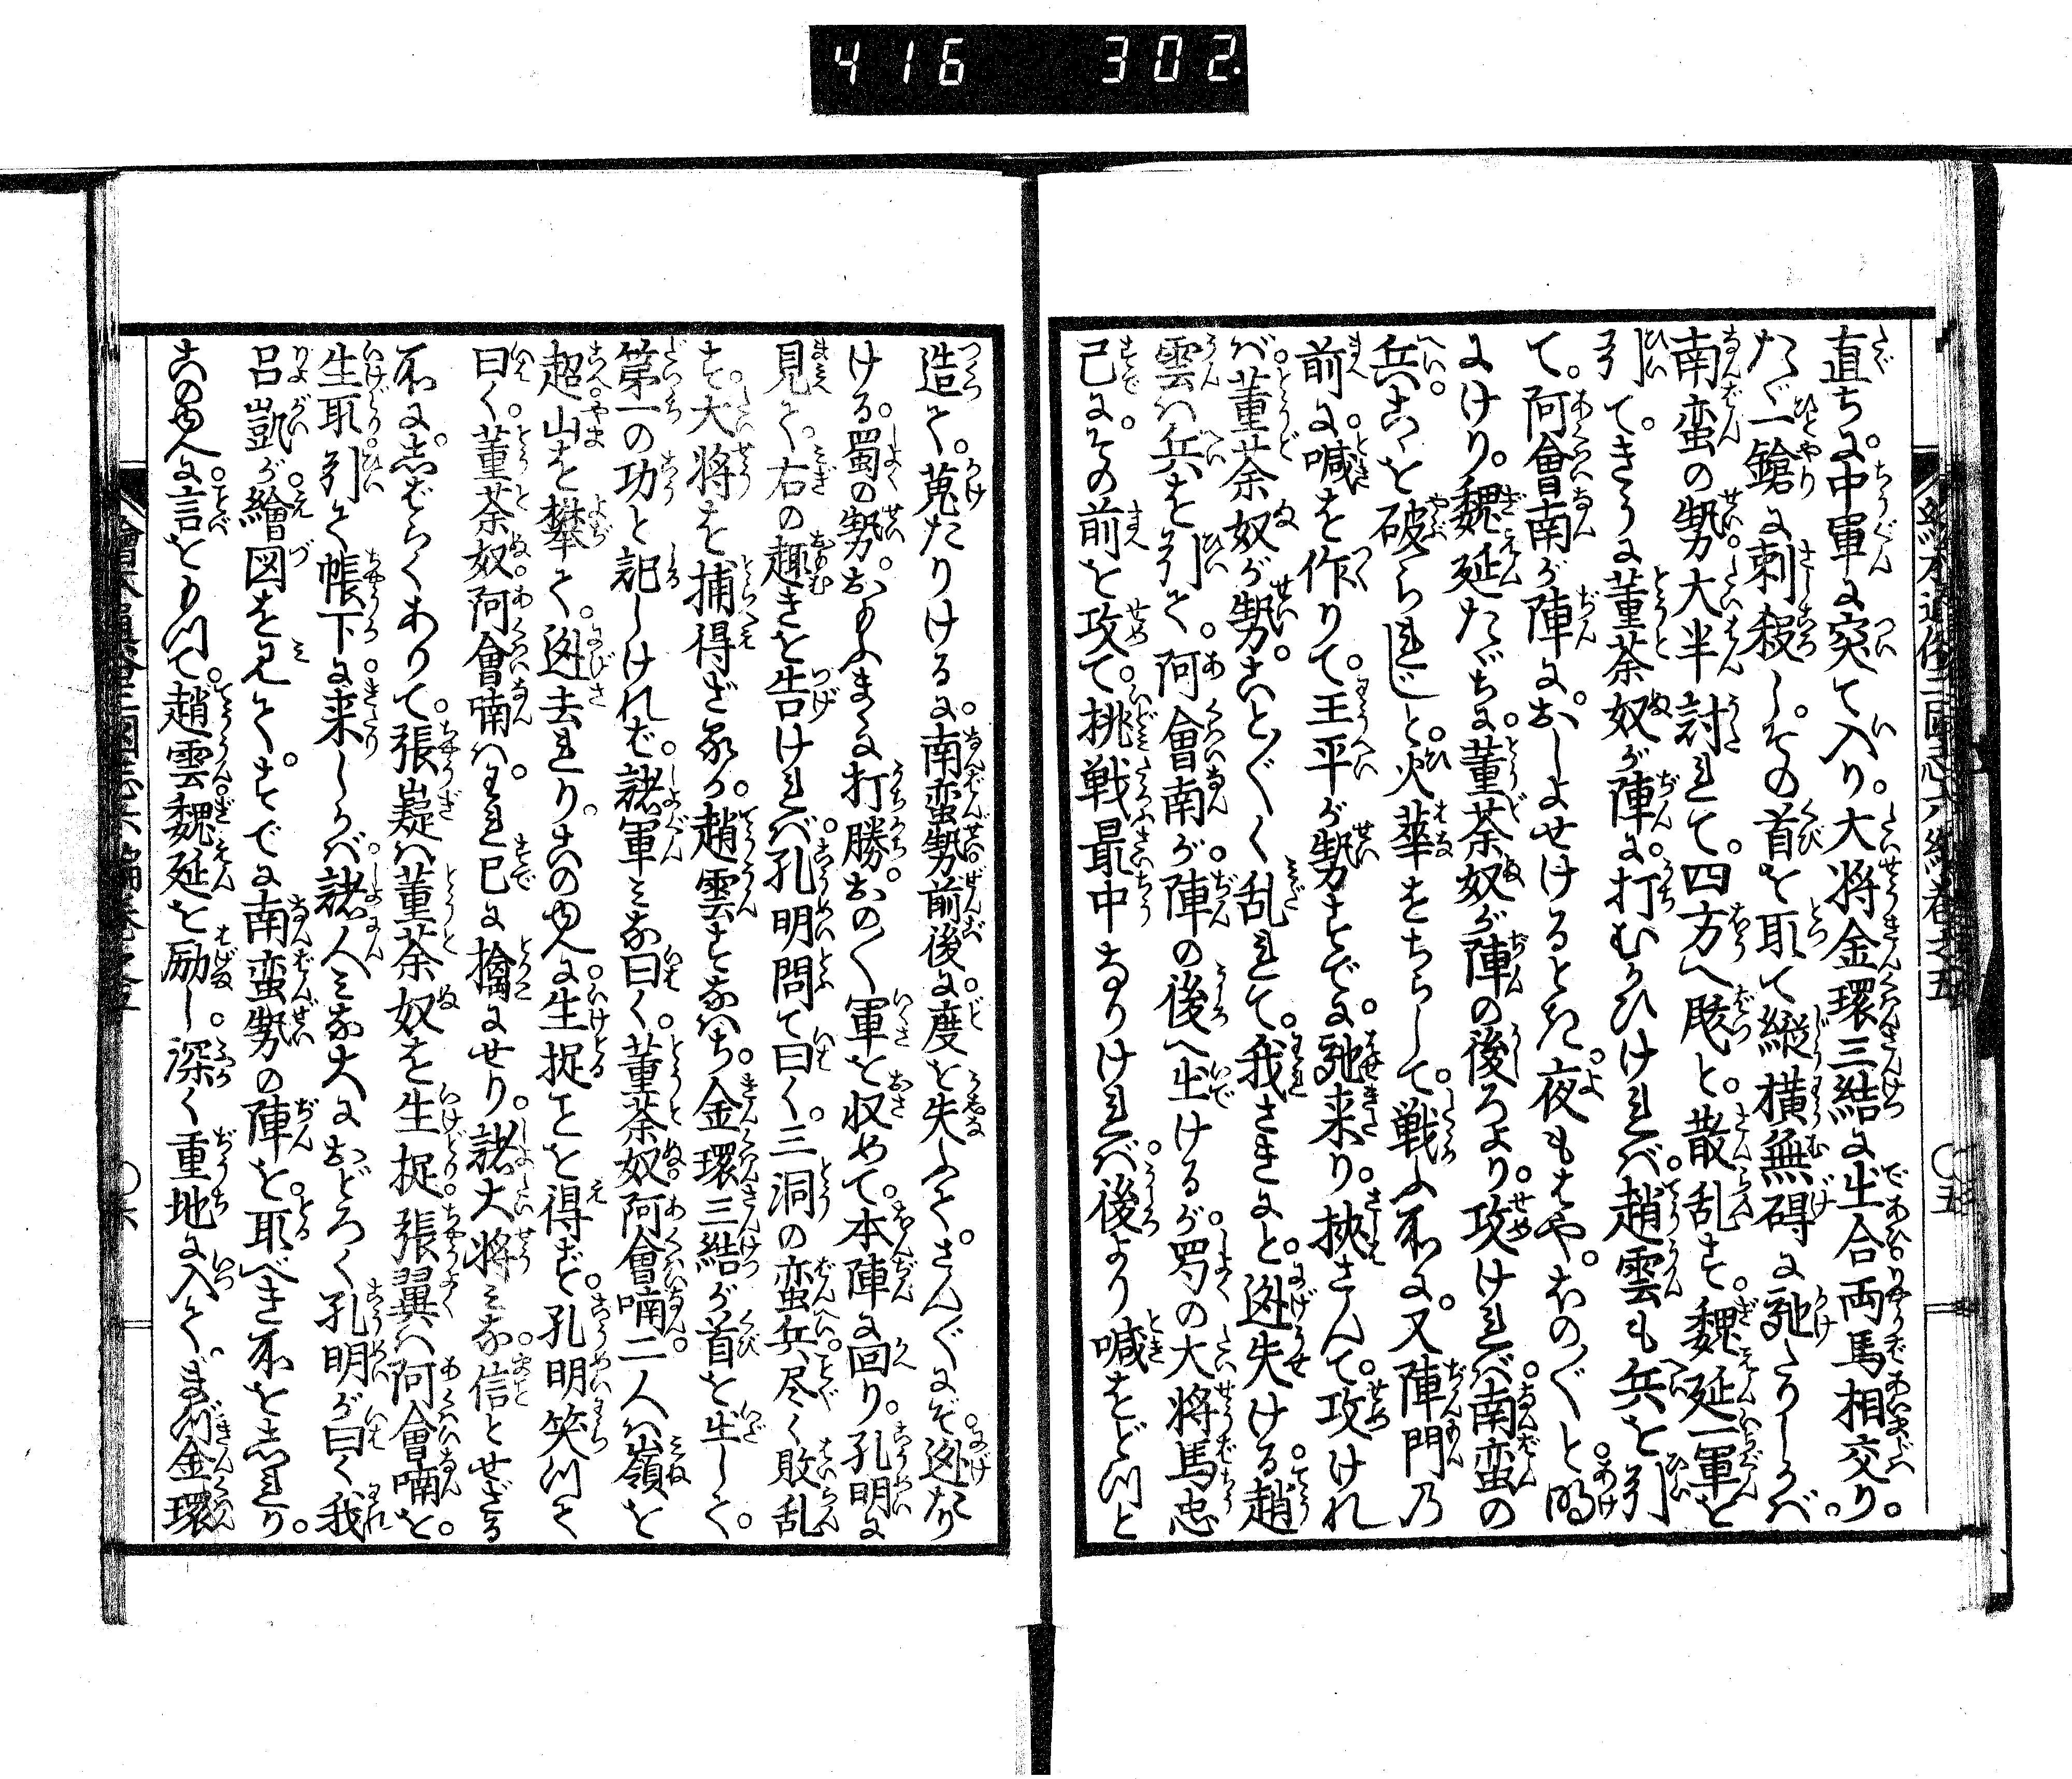 416 302.
直ちに。中軍に突て入り。大将金環三結に出合両馬相交り。
たゞ一鎗に刺殺し。その首を取て縦横無碍に馳たりしかば。
南蛮の勢大半討れて。四方へ赱と。散乱す。魏延一軍を
引て。きうに董荼奴が陣に。打むかひけれバ。趙雲も兵を引
て。阿會南が陣に。おしよせけるとき。夜もはや。ほの〲と。明
にけり。魏延たゞちに。董荼奴が陣の後ろより。攻けれバ。南蛮の
兵。こゝを破られじと。火華をちらして。戦ふ所に。又陣門乃
前に。喊を作りて。王平が勢すでに。馳来り。挟さんて。攻けれ
バ。董荼奴が勢。こと〲く乱れて。我さきにと。迯失ける。趙
雲ハ兵を引て。阿會南が。陣の後へ出けるが。蜀の大将馬忠
已に。その前を攻て。挑戦最中なりけれバ。後より喊をどつと
造て。蒐たりけるに。南蛮勢前後に。度を失ふて。さん〲にぞ。迯たり
ける。蜀の勢。おもふまゝに打勝。おの〱軍を収めて。本陣に回り。孔明に
見えて。右の趣きを告けれバ。孔明問て曰く。三洞の蛮兵。尽く敗乱
す。大将を捕得ざるか。趙雲すなハち。金環三結が首を出して。
第一の功と記しけれバ。諸軍ミな曰く。董荼奴。阿會喃。二人ハ嶺を
超。山を攀て。迯去れり。この両人に。生捉ことを得ず。孔明笑つて
曰く。董荼奴。阿會喃ハ。われ已に擒にせり。諸大将ミな。信とせざる
所に。志ばらくありて。張嶷ハ董荼奴を生捉。張翼ハ阿會喃を。
生取。引て帳下に。来しかバ。諸人ミな大におどろく。孔明が曰く我
呂凱が。繪図を見て。すでに南蛮勢の陣を。取べき所を志れり。
この両人に。言をもつて。趙雲。魏延を励し。深く重地に入て。まづ金環